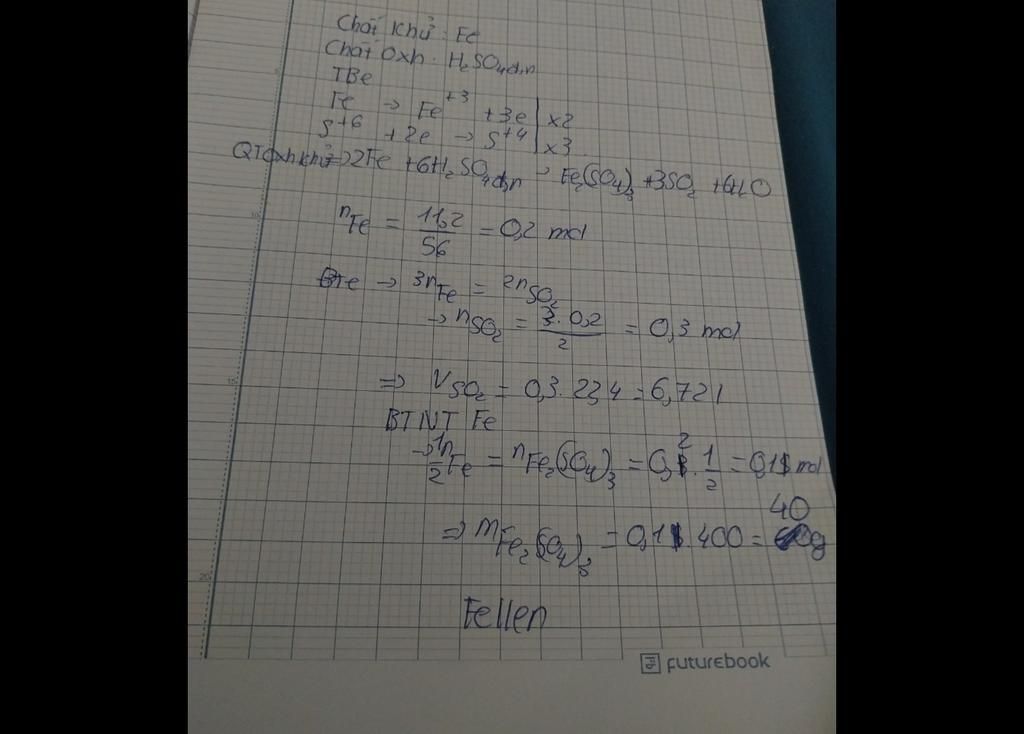 Chất khử: Fe
Chất oxh: H₂SO₄đ,n
TBe
Fe → Fe⁺³ + 3e | x2
S⁺⁶ + 2e → S⁺⁴ | x3
QT oxh khử → 2Fe + 6H₂SO₄đ,n → Fe₂(SO₄)₃ + 3SO₂ + 6H₂O
nFe = 11,2/56 = 0,2 mol
BTe → 3nFe = 2nSO₂
→ nSO₂ = 3.0,2/2 = 0,3 mol
⇒ VSO₂ = 0,3.22,4 = 6,72 l
BTNT Fe
→ 1/2 nFe = nFe₂(SO₄)₃ = 0,2.1/2 = 0,1 mol
⇒ mFe₂(SO₄)₃ = 0,1.400 = 40g
Fellen
futurebook